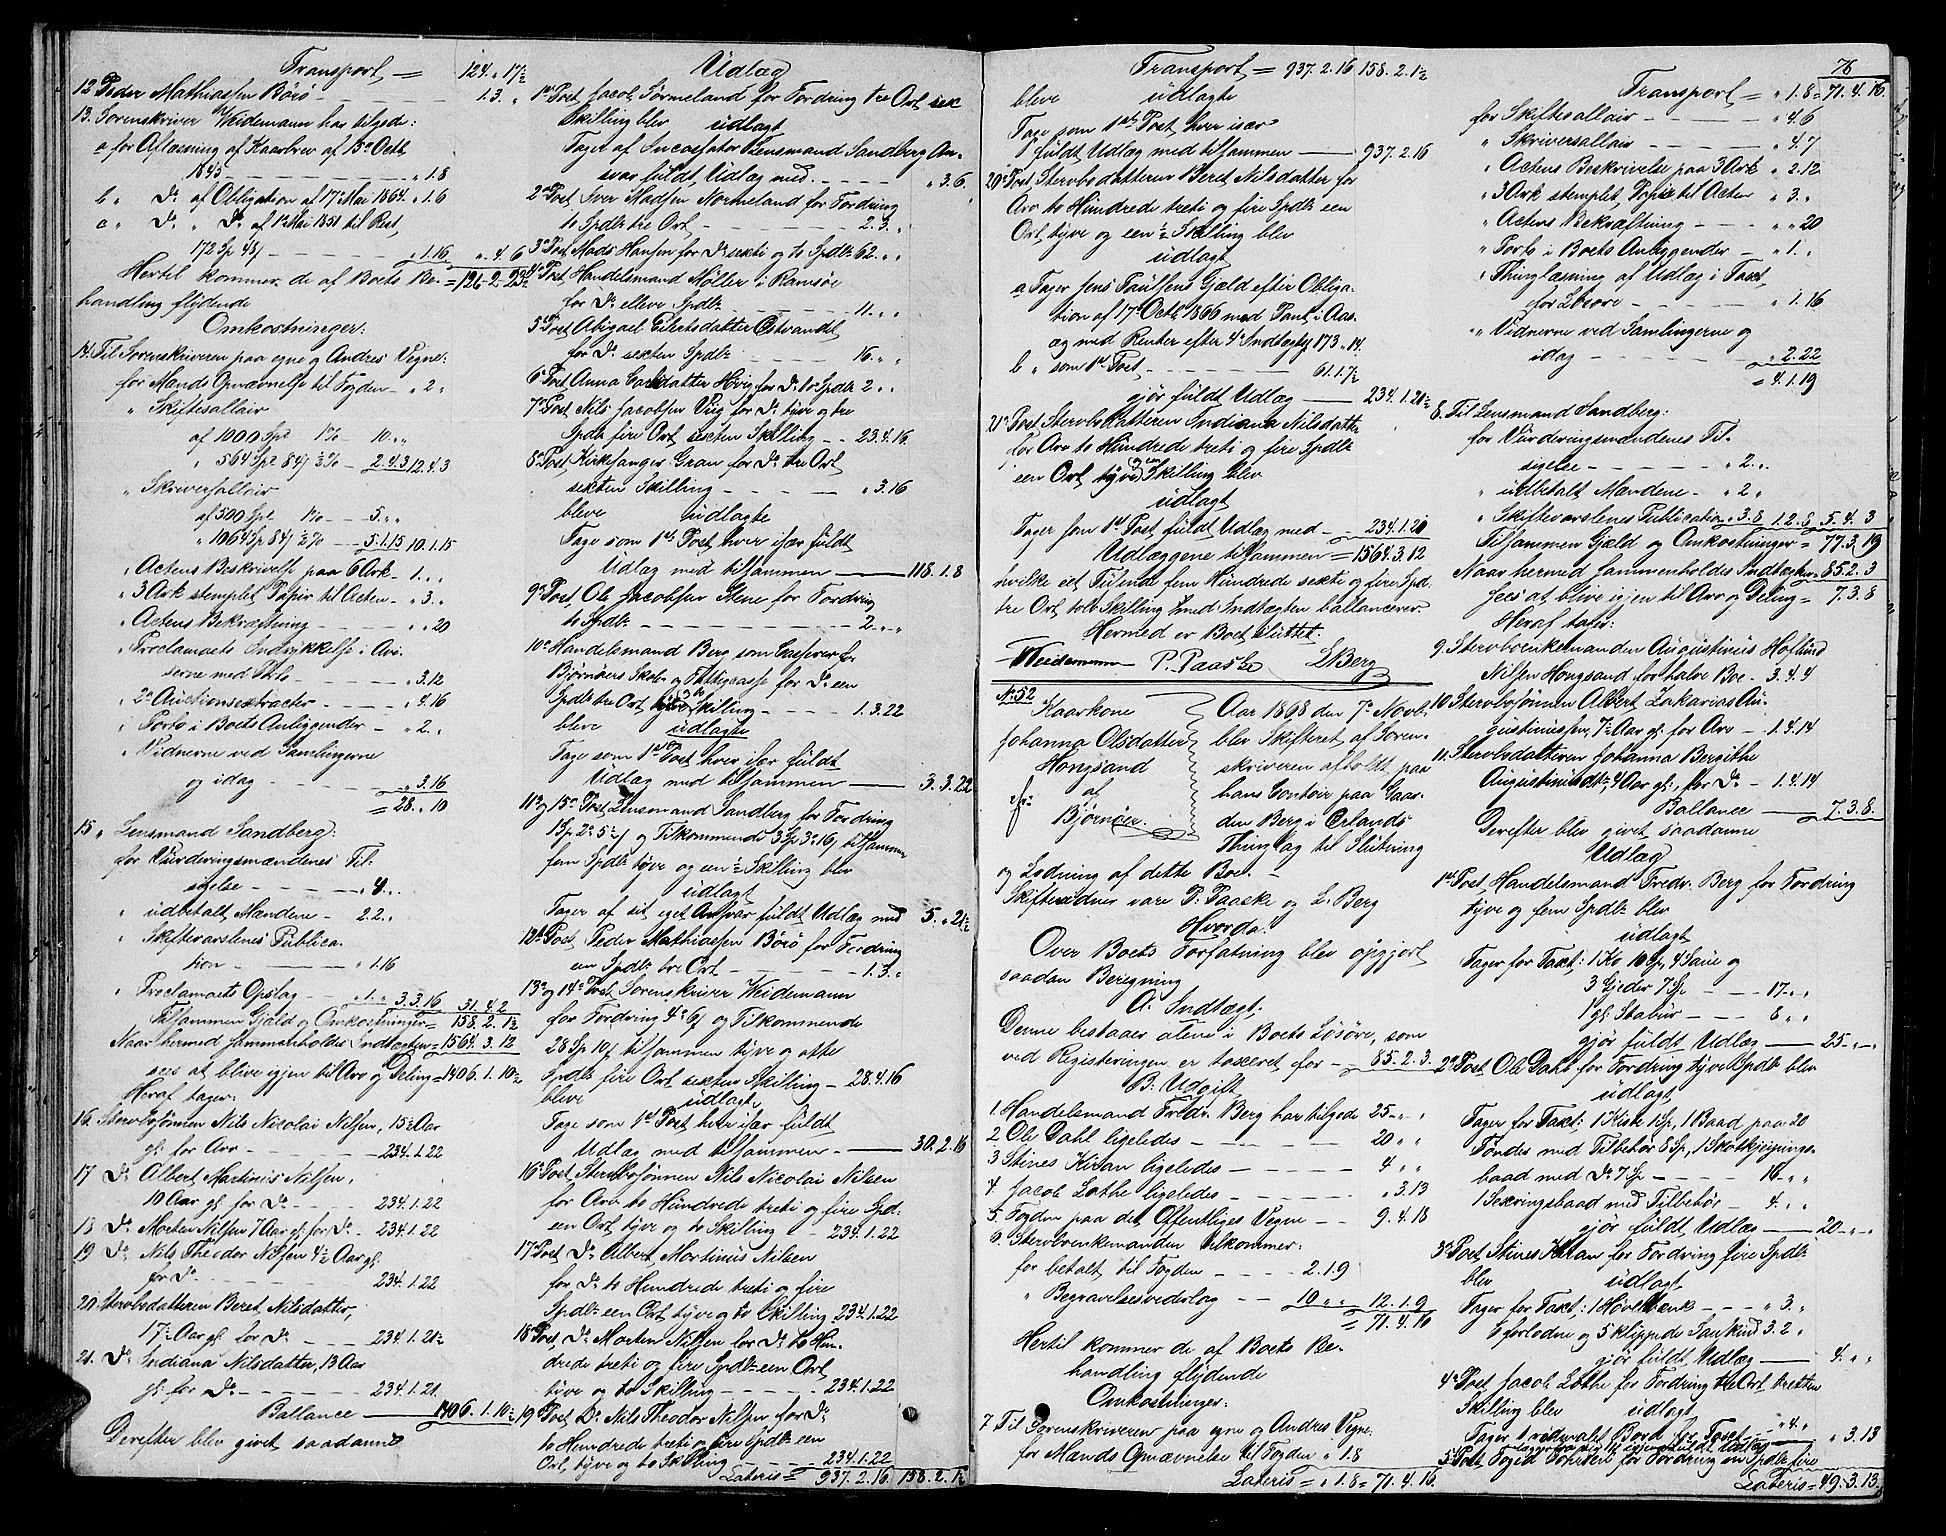 Transport = 124. „ 17½
12 Peder Mathiassen Börö - 1.3. „
13. Sorenskriver Weidemann har tilgode:
a for Aflæsning af Kaarbrev af 13de Octb.
1845 - „ 1.8
b „ Do af Obligation af 17de Mai 1864 „ 1.6
c „ Do „ Do af 1ste Mai 1851 til Rest
172 Sp 48 ß - „ 1.16 „ 4. 6
Hertil kommer de af Boets Be- = 126. 2. 23½
handling flydende
Omkostninger:
14. Til Sorenskriveren paa egne og Andres Vegne:
for Mænds Opnævnelse til Fogden - „ 2 „
„ Skiftesallair
af 1000 Spd 1% - 10. „ „
„ 564 Spd 84 ß ½% - 2.4.3 12.4.3
„ Skriversallair
af 500 Spd 1% - 5. „ „
„ 1064 Sp 84 ß ½% - 5.1.15 10.1.15
„ Actens Beskrivelse paa 6 Ark - 1. „ „
„ 3 Ark stemplet Papir til Acten - „ 3. „
„ Actens Bekræftning - „ „ 20
„ Proclamaets Indrykkelse i Avi-
serne med Porto - „ 3.12
„ 2de Auctionsextracter - „ 4.16
„ Porto i Boets Anliggender - „ 2. „
„ Vidnerne ved Samlingerne
og idag - „ 3.16
= 28. „ 10
15 „ Lensmand Sandberg:
for Vurderingsmændenes Til-
sigelse - „ 4. „
„ udbetalt Mændene - 2.2. „
„ Skiftevarslenes Publica-
tion - „ 1.16
„ Proclamaets Opslag - „ 1. „ 3.3.16 31.4.2
Tilsammen Gjæld og Omkostninger = 158. 2. 1½
Naar hermed sammenholdes Indtægten = 1564. 3. 12
sees at blive igjen til Arv og Deling = 1406. 1. 10½
Heraf tager:
16. Stervbsønnen Nils Nicolai Nilsen, 15½ Aar
gl. for Arv - 234.1.22
17 Do Albert Martinus Nilsen,
10 Aar gl. for Do - 234.1.22
18 Do Morten Nilsen 7 Aar gl. for Do - 234.1.22
19 Do Nils Theodor Nilsen 4½ Aar gl.
for Do - 234.1.22
20. Stervbsdatteren Beret Nilsdatter,
17½ Aar gl. for Do - 234.1.21½
21. Do Indiana Nilsdatter, 13 Aar
gl. for Do - 234.1.21.
Ballance 1406. 1. 10½
Derefter blev givet saadanne
Udlæg
1ste Post Jacob Sørmeland for Fordring tre Ort sex
Skilling blev udlagt
Tager af Incassator Lensmand Sandberg An-
svar fuldt Udlæg med - „ 3.6.
2den Post Iver Madsen Normeland for Fordring
to Spdlr tre Ort - 2.3. „
3die Post Mads Hansen for Do sexti og to Spdlr 62. „ „
4de Post Handelsmand Møller i Ramsøe
for Do elleve Spdlr - 11. „ „
5te Post Abigael Eilertsdatter Østvandet
for Do sexten Spdlr - 16. „ „
6te Post Anna Carlsdatter Hvig for Do to Spdlr 2 „ „
7de Post Nils Jacobsen Viig for Do tyve og tre
Spdlr fire Ort sexten Skilling - 23.4.16.
8de Post Kirkesanger Gran for Do tre Ort
sexten Skilling - „ 3.16
bleve udlagte
Tage som 1ste Post hver især fuldt
Udlæg med tilsammen - 118.1.8
9de Post, Ole Jacobsen Stene for Fordring
to Spdlr - 2. „ „
10de Handelsmand Berg som Casserer for
Bjørnøers Skole og Fattigcasse for Do een
Spdlr tre Ort tyve to Skilling - 1.3.22
bleve udlagte
Tage som 1ste Post hver især fuldt
Udlæg med tilsammen - 3.3.22
11te og 15de Post Lensmand Sandberg for Fordring
1 Sp 2 5½ ß og Tilkommende 3 Sp 3 16 ß tilsammen
fem Spdlr tyve og een ½ Skilling blev
udlagt
Tager af sit eget Ansvar fuldt Udlæg med 5. „ 21½
12te Post, Peder Mathiassen Börö for Fordring
een Spdlr tre Ort - 1.3. „
13de og 14de Post Sorenskriver Weidemann
for Fordring 4 6 ß og Tilkommende
28 Sp 10 ß tilsammen tyve og otte
Spdlr fire Ort sexten Skilling - 28.4.16
bleve udlagte
Tage som 1ste Post hver især fuldt
Udlæg med tilsammen - 30.2.16
16de Post, Stervbsønnen Nils Nicolai Nilsen
for Arv to Hundrede treti og fire Spd:
een Ort tyve og to Skilling - 234.1.22
17de Post, Do Albert Martinus Nilsen
for Do to Hundrede treti og fire
Spdlr een Ort tyve og to Skilling 234.1.22
18de Post, Do Morten Nilsen for Do to Hun-
drede treti og fire Spdlr een Ort
tyve og to Skilling - 234.1.22
19de Post Do Nils Theodor Nilsen for Do
to Hundrede treti og fire Spdlr een
Ort tyve og to Skilling - 234.1.22
Lateris = 937. 2. 16. 158. 2. 1½
Transport = 937. 2. 16 158. 2. 1½
bleve udlagte
Tage som 1ste Post hver især
fuldt Udlæg med tilsammen - 937. 2. 16
20de Post, Stervbsdatteren Beret Nilsdatter for
Arv to Hundrede treti og fire Spdlr een
Ort, tyve og een ½ Skilling blev
udlagt
a Tager Jens Paulsens Gjæld efter Obliga-
tion af 17de Octb 1866 med Pant i Aas-
æg med Renter efter 4de Indtægtsp. 173 „ 14.
b „ som 1ste Post - 61.1.7½
gjør fuldt Udlæg - 234.1.21½
21de Post, Stervbsdatteren Indiana Nilsdatter
for Arv to Hundrede treti og fire Spdlr
een Ort tyve og een Skilling blev
udlagt
Tager som 1ste Post fuldt Udlæg med - 234.1.20
Udlæggene tilsammen = 1564. 3. 12
hvilke eet Tusende fem Hundrede sexti og fire Spd.
tre Ort, tolv Skilling med Indtægten ballancerer.
Hermed er Boet sluttet.
Weidemann P. Paaske L Berg
No. 52
Kaarkone
Johanna Olsdatter
Hongsand
af
Bjørnøer.
Aar 1868 den 7de Novb.
blev Skifteret af Soren-
skriveren afholdt paa
hans Contoir paa Gaar-
den Berg i Ørlands
Thinglag til Slutning
og Lodning af dette Boe. -
Skiftevidner vare P. Paaske og L. Berg
Hvorda:
Over Boets Forfatning blev opgjort
saadan Beregning
A. Indtægt:
Denne bestaaer alene i Boets Løsøre, som
ved Registeringen er taxeret for - 85. 2. 3.
B. Udgift
1. Handelsmand Fredr. Berg har tilgode 25 „ „
2 Ole Dahl ligeledes - 20 „ „
3 Stines Kiran ligeledes - 4 „ „
4. Jacob Lothe ligeledes - „ 3.13
5. Fogden paa det Offentliges Vegne - 9. 4. 18
6. Stervboenkemanden tilkommer:
for betalt til Fogden - 2.1.9
„ Begravelsesvederlag - 10 „ „ 12. 1. 9
= 71. 4. 16
Hertil kommer de af Boets Be-
handling flydende
Omkostninger:
7 Til Sorenskriveren paa egne og Andres Vegne:
for Mænds Opnævnelse til Fogden „ 1.8
Lateris = „ 1.8 = 71. 4. 16.
76
Transport = „ 1.8 = 71. 4. 16.
for Skiftesallair - „ 4.6
„ Skriversallair - „ 4.7
„ Actens Beskrivelse paa 3 Ark „ 2.12
„ 3 Ark stemplet Papir til Acten „ 3. „
„ Actens Bekræftning - „ „ 20
„ Porto i Boets Anliggender - „ 1. „
„ Thinglæsning af Udlæg i Faxt,
for Løsøre - „ 1.16
„ Vidnerne ved Samlingerne og
idag - „ 2.22
= 4.1.19
8. Til Lensmand Sandberg:
for Vurderingsmændenes Til-
sigelse - „ 2. „
„ udbetalt Mændene - „ 2 „
„ Skiftevarslenes Publication „ 3.8 1.2.8 5. 4. 3
Tilsammen Gjæld og Omkostninger = 77. 3. 19
Naar hermed sammenholdes Indtægten = 85. 2. 3
sees at blive igjen til Arv og Deling = 7. 3. 8
Heraf tager:
9. Stervboenkemanden Augustinus Hoflund
Nilsen Hongsand for halve Boe - 3. 4. 4
10. Stervbsønnen Albert Zakarias Au-
gustinussen, 7½ Aar gl. for Arv - 1. 4. 14
11. Stervbsdatteren Johanna Bergithe
Augustinusdtr, 4 Aar gl., for Do - 1. 4. 14
Ballance - 7. 3. 8.
Derefter blev givet saadanne
Udlæg
1ste Post, Handelsmand Fredr. Berg for Fordring
tyve og fem Spdlr blev
udlagt
Tager for Taxt: 1 Ko 10 Sp, 4 Saue og
3 Gjeder 7 Sp - 17. „ „
1 gl. Stabur - 8 „ „
gjør fuldt Udlæg - 25 „ „
2den Post, Ole Dahl for Fordring tyve Spdlr blev
udlagt
Tager for Taxt: 1 Kiste 1 Sp, 1 Baad paa 20
Tønder med Tilbehør 8 Sp, 1 Skotkjeipnings-
baad med Do 7 Sp - 16. „ „
1 Sexringsbaad med Tilbehør - 4. „ „
gjør fuldt Udlæg - 20 „ „
3die Post, Stines Kiran for Fordring fire Spdlr
blev udlagt
Tager for Taxt: 1 Høvelbænk - „ 3. „
6 forlodne og 5 klippede Saueskind 3. 2. „
gjør fuldt Udlæg - 4. „ „
4de Post Jacob Lothe for Fordring tre Ort tretten
Skilling blev udlagt
Tager 1 rødmalet Bord for Taxt - „ 4. „ „ 3.13
5te Post Foged for Fordring ni Spdlr fire
Lateris = 49. 3. 13.